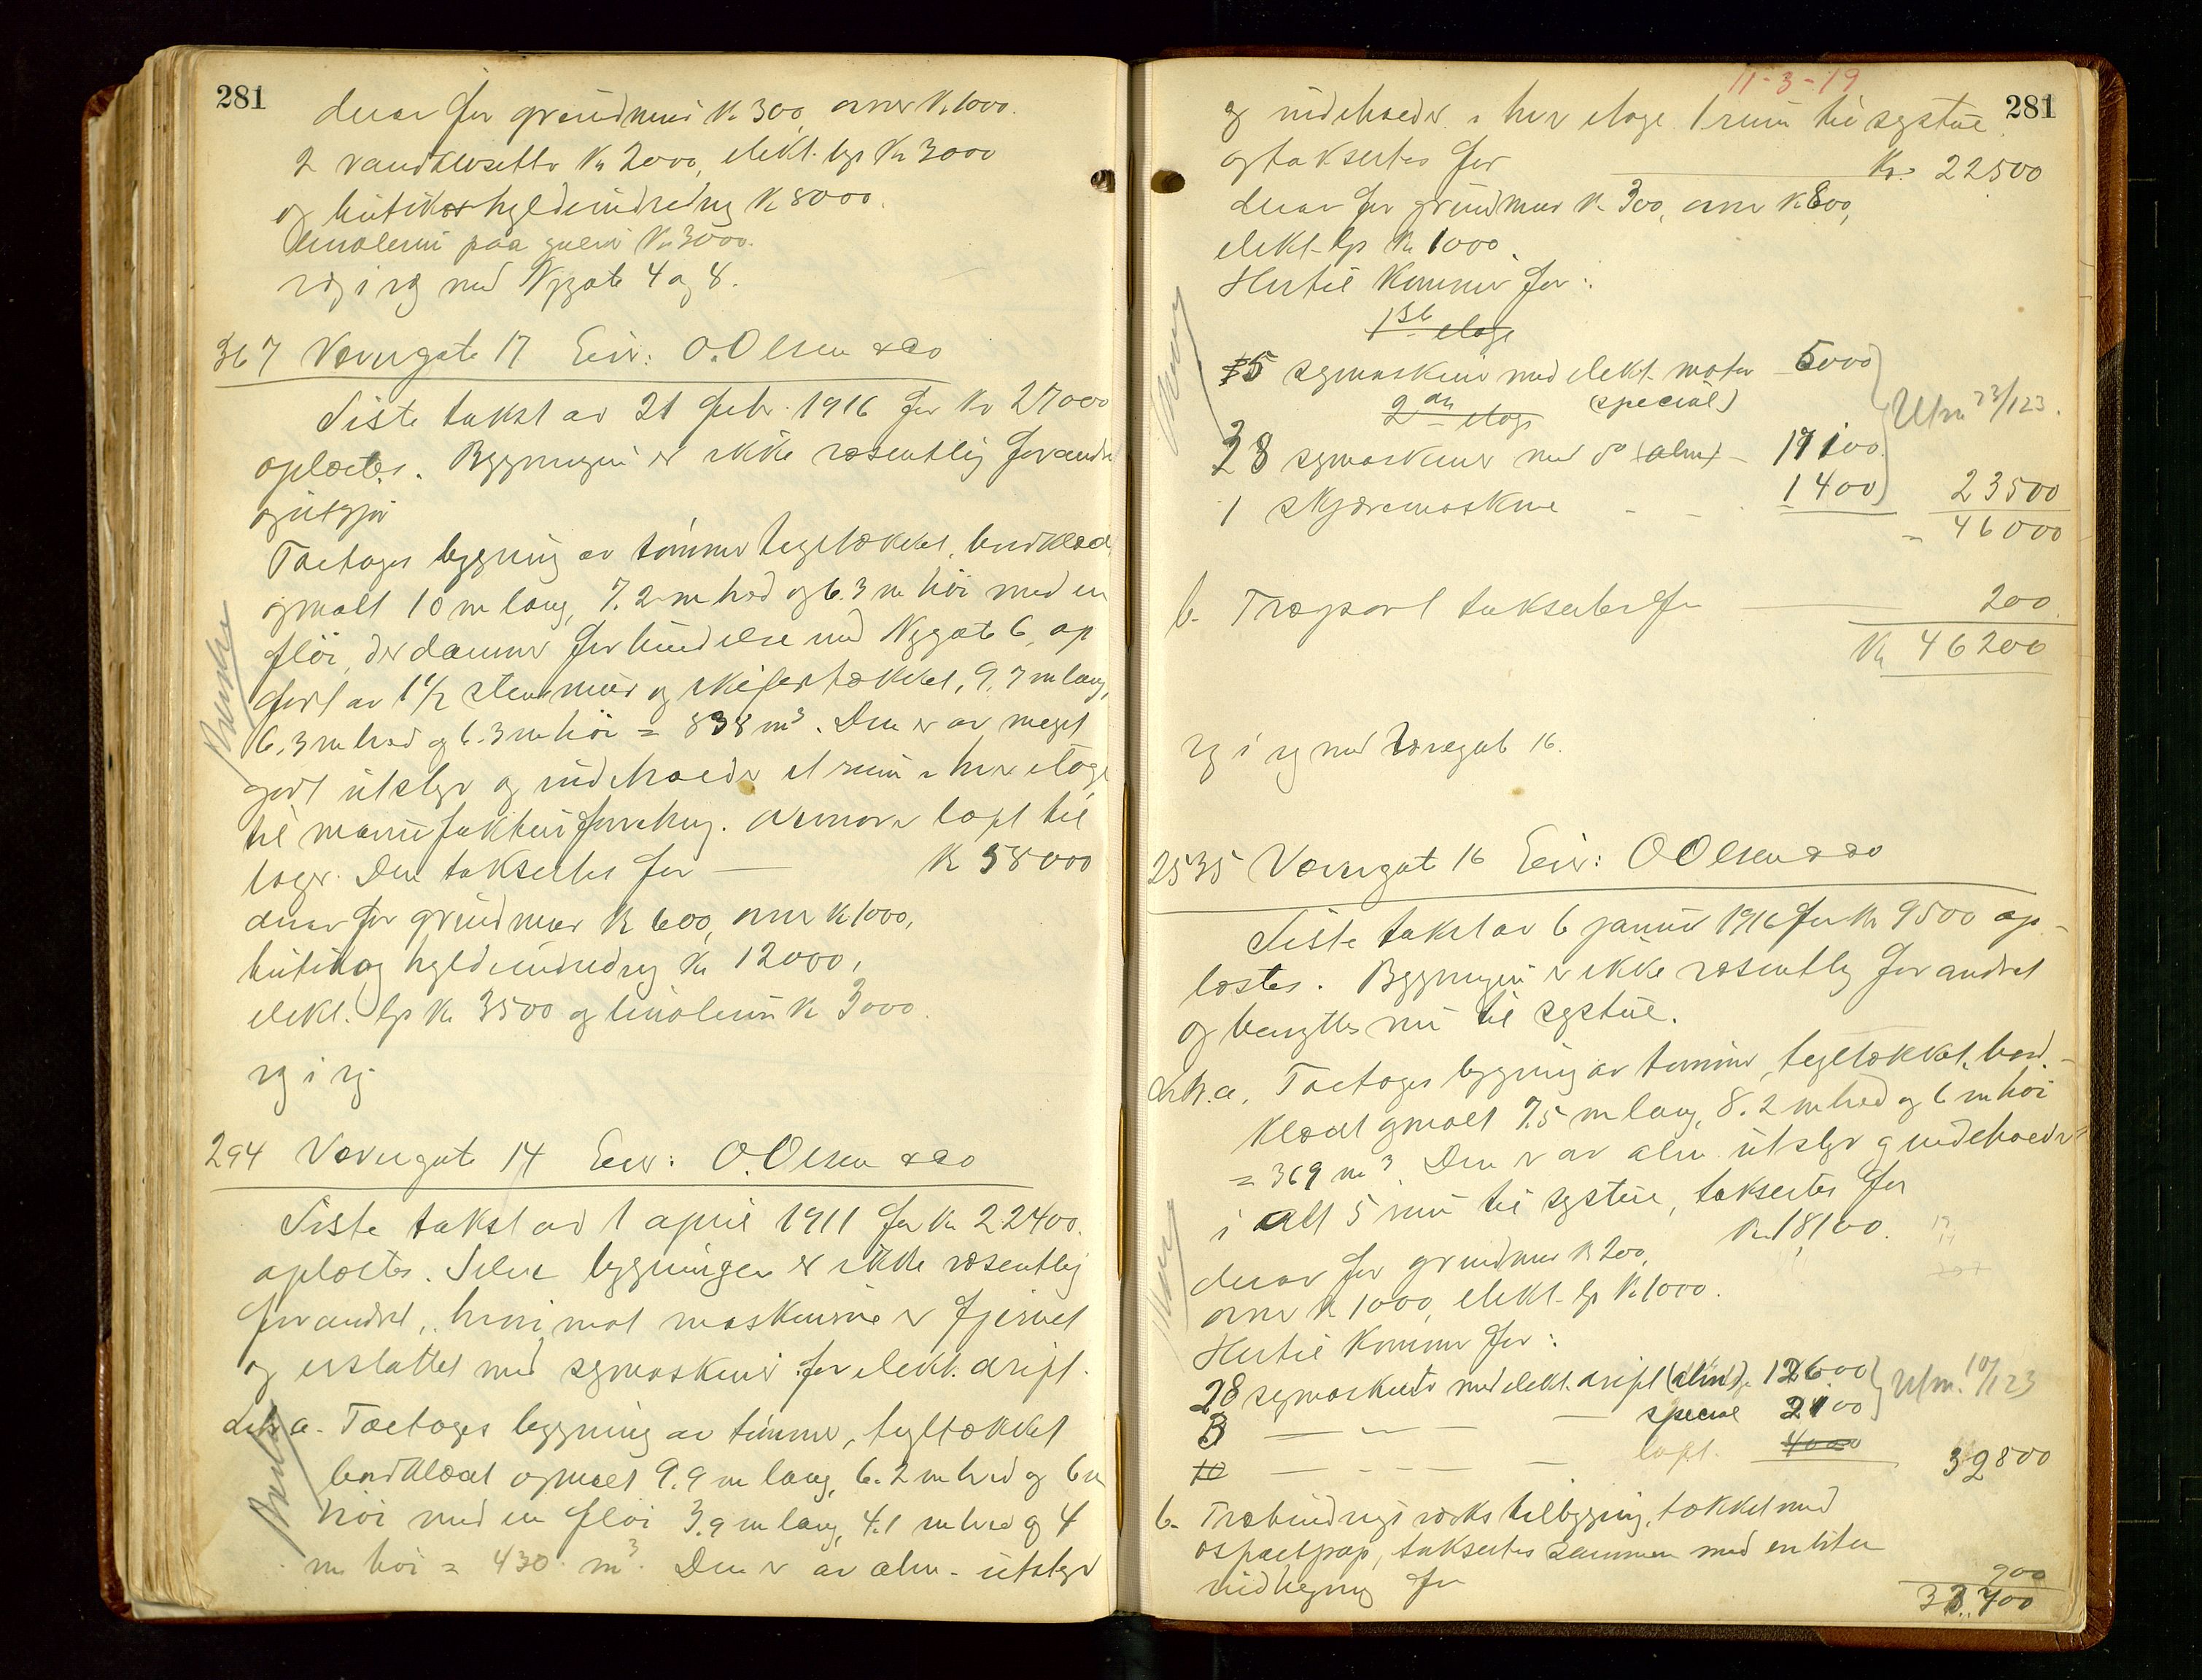 281
derav for grundmur Kr 300, ovner Kr 1000.
2 vandklosetter Kr 2000, elekt. lys Kr 3000
og butikshyldeindredng Kr 8000.
linoleum paa gulvene Kr 3000.
ryg i ryg med Nygate 4 og 8.
367 Vævergate 17 Eier: O. Olsen & Co
Siste takst av 21 febr. 1916 for Kr 27000
oplæstes. Bygningen er ikke væsentlig forandret
og utgjør
Toetages bygning av tømmer tegltækket, bordklædt
og malt 10 m lang, 7.2 m bred og 6.3 m høi med en
fløi, der danner forbindelse med Nygate 6, op
ført av 1 1/2 stens mur og skifertækket, 9.7 m lang,
6.3 m bred og 6.3 m høi = 838 m³. Den er av meget
godt utstyr og indeholder et rum i hver etage
til manufakturforretning. ovenover loft til
lager. Den takseres for — Kr 58000
derav for grundmur Kr 600, ovner Kr 1000,
butik og hyldeindredng Kr 12000,
elekt. lys Kr 3500 og linoleum Kr 3000.
ryg i ryg
294 Vævergate 14 Eier: O. Olsen & Co
Siste takst av 1 april 1911 for Kr 22400.
oplæstes. Selve bygningen er ikke væsentlig
forandret, hvorimot maskinerne er fjernet
og erstattet med symaskiner for elekt. drift.
Litr a. Toetages bygning av tømmer, tegltækket
bordklædt og malt 9.9 m lang, 6.2 m bred og 6 m
høi med en fløi 3.9 m lang, 4.1 m bred og 4
m høi = 430 m³. Den er av alm. utstyr
11-3-19
281
og indeholder i hver etage 1 rum til systue
og takseres for — Kr. 22500
derav for grundmur Kr 300, ovner Kr 800,
elekt. lys Kr 1000.
Hertil kommer for:
1ste etage
5 symaskiner med elekt. motor 5000
(special)
2den etage
Utm 23/1 23.
28 symaskiner med do (alm) - 17100
1 skjæremaskine - - 1400 23500
= 46000
b. Træport takseres for — 200
Kr 46200
ryg i ryg med Vævergate 16.
2535 Vævergate 16 Eier: O Olsen & Co
Siste takst av 6 januar 1916 for Kr 9500 op-
læstes. Bygningen er ikke væsentlig forandret
og benyttes nu til systue.
Litr. a. Toetages bygning av tømmer, tegltækket, bord-
klædt og malt 7.5 m lang, 8.2 m bred og 6 m høi
= 369 m³. Den er av alm. utstyr og indeholder
i alt 5 rum til systue, takseres for
Kr. 18100.
derav for grundmur Kr 200,
ovner Kr 1000, elekt. lys Kr 1000.
Hertil kommer for:
28 symaskiner med elekt. drift (alm) 12600
Utm. 10/1 23
3 — — — special 2100
10 — — — — loft. 4000 32800
b. Træbindingsverks tilbygning, tækket med
asfaltpap, takseres sammen med en liten
vedbygning for 900
33700